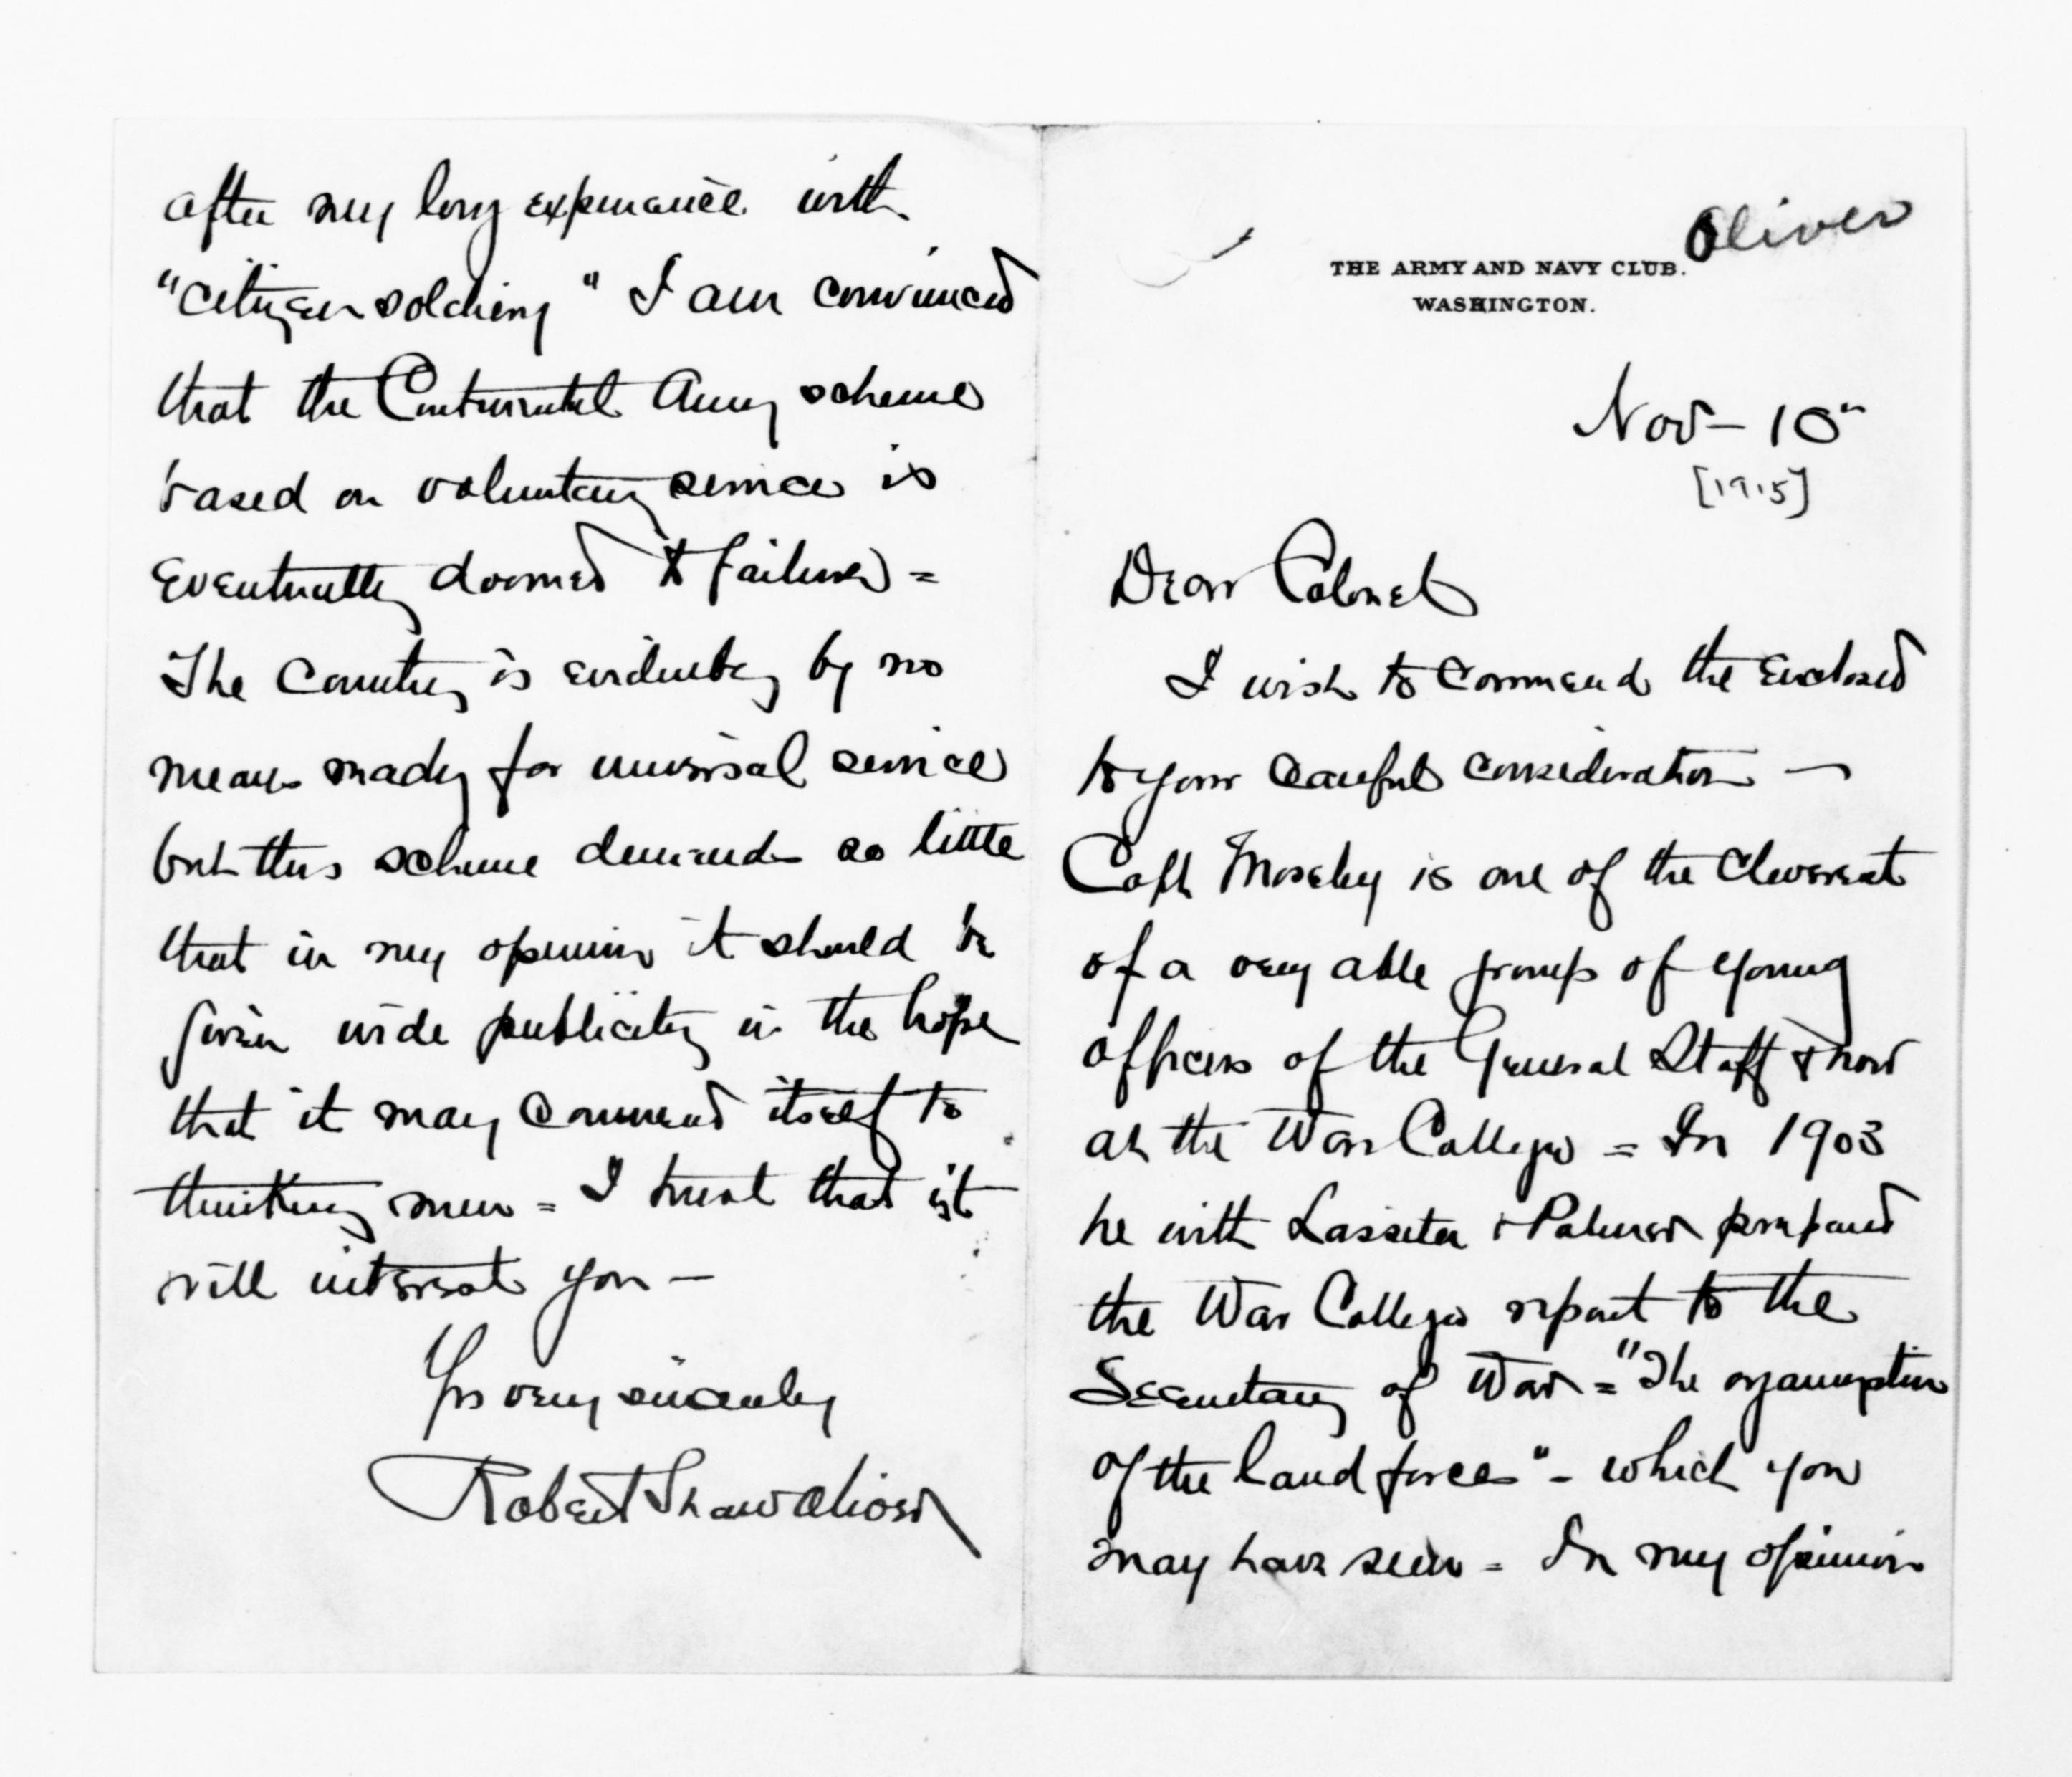 Oliver
THE ARMY AND NAVY CLUB.
WASHINGTON.
Nov - 10"
[1915]
Dear Colonel
I wish to commend the enclosed
to your careful consideration —
Capt Moseley is one of the cleverest
of a very able group of young
officers of the General Staff & now
at the War College = In 1903
he with Lassiter & Palmer prepared
the War College report to the
Secretary of War = "The organization
of the land forces" - which you
may have seen = In my opinion
after my long experience with
"citizen soldiery" I am convinced
that the Continental Army scheme
based on voluntary service is
eventually doomed to failure =
The Country is evidently by no
means ready for universal service
but this scheme demands so little
that in my opinion it should be
given wide publicity in the hope
that it may commend itself to
thinking men = I trust that it
will interest you —
Yrs very sincerely
Robert Shaw Oliver